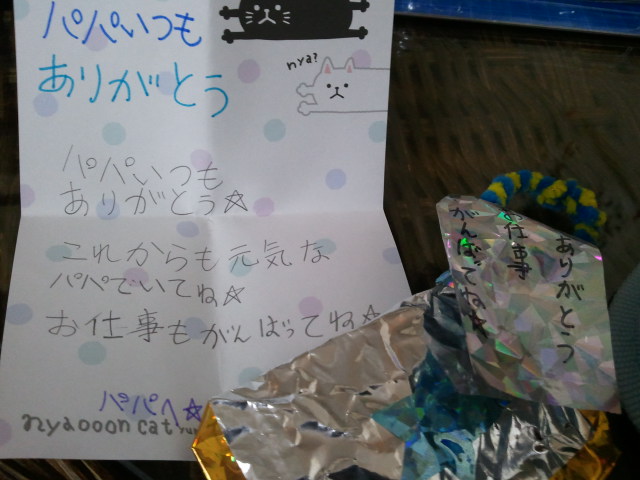 パパいつも
ありがとう
nya?
パパいつも
ありがとう☆
これからも元気な
パパでいてね☆
お仕事もがんばってね☆
パパへ☆
nyaooon cat
ありがとう
お仕事
がんばてね☆